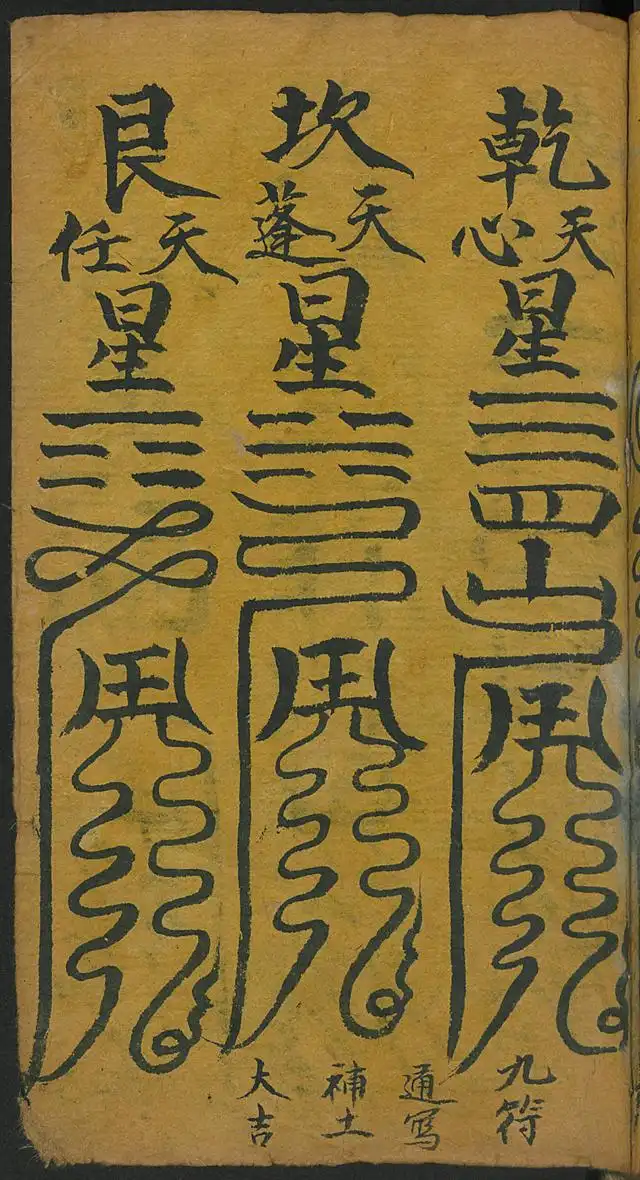 乾
天心
星
☰
四
山
坎
天蓬
星
☵
艮
天任
星
☶
九符
通寫
補土
大吉